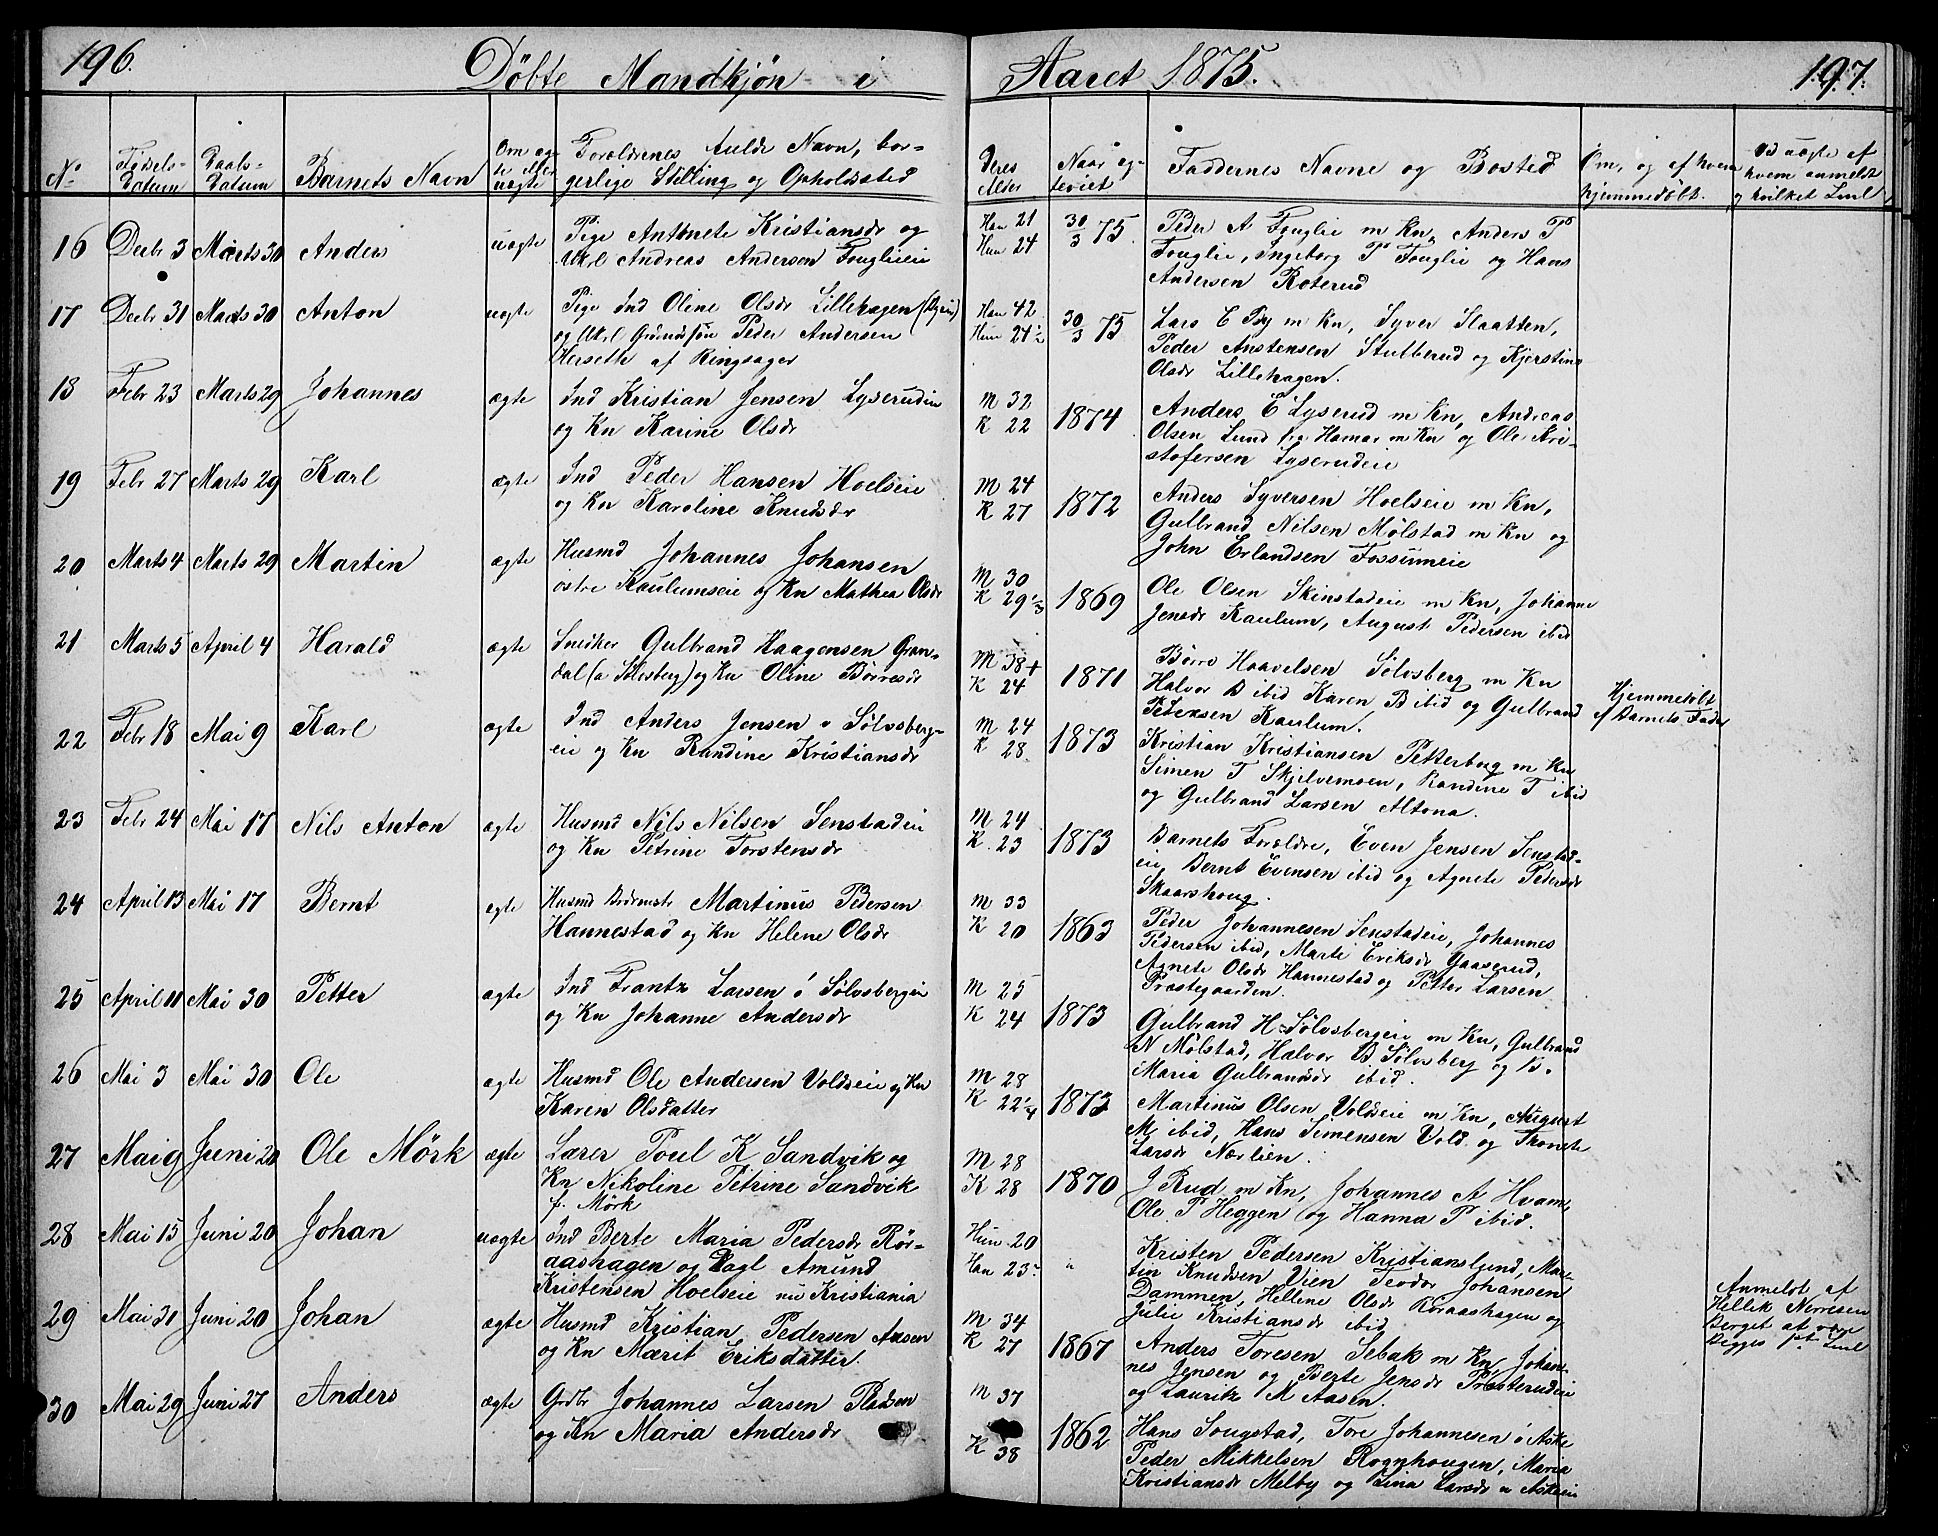 196.
Døbte Mandkjøn i
Aaret 1875.
197.
No
Fødsels-
Datum
Daabs-
Datum
Barnets Navn
Om æg-
te eller
uægte
Forældrenes fulde Navn, bor-
gerlige Stilling og Opholdssted
Deres
Alder
Naar eg-
teviet
Faddernes Navne og Bosted
Om, og af hvem
hjemmedøbt.
Ved uægte af
hvem anmeldt
og hvilket Leiermaal
16 Decbr 3 Marts 30 Anders uægte Pige Antonete Kristiansdr og
Ukrl Andreas Andersen Fouglieie
Han 21
Hun 24
30/3 75.
Peder A Fouglie m Kn, Anders P
Fouglie, Ingeborg P Fouglie og Hans
Andersen Roterud
17 Decbr 31 Marts 30 Anton uægte Pige Ind Oline Olsdr Lillehagen
og Ukrl Grdmdssøn Peder Andersen
Herseth af Ringsager
Han 42
Hun 24½
30/3 75
Lars E By m Kn, Syver Slaatten,
Peder Anstensen Stulberud og Kjerstine
Olsdr Lillehagen.
18 Febr 23 Marts 29 Johannes ægte Ind Kristian Jensen Lyserudeie
og Kn Karine Olsdr
M 32
K 22
1874
Anders E Lyserud m Kn, Andreas
Olsen Lund fra Hamar m Kn og Ole Kri-
stofersen Lyserudeie
19 Febr 27 Marts 29 Karl ægte Ind Peder Hansen Hoelseie
og Kn Karoline Knudsdr
M 24
K 27
1872
Anders Syversen Hoelseie m Kn,
Gulbrand Nilsen Mølstad m Kn og
John Erlandsen Fossumeie
20 Marts 4 Marts 29 Martin ægte Husmd Johannes Johansen
østre Kaulumseie og Kn Mathea Olsdr
M 30
K 29⅓
1869
Ole Olsen Skinstadeie m Kn, Johanne
Jensdr Kaulum, August Pedersen ibid
21 Marts 5 April 4 Harald ægte Snedker Gulbrand Haagensen Gran-
dal (a Sølvsberg) og Kn Oline Børresdr
M 38
K 24
1871
Børre Haavelsen Sølvsberg m Kn
Halvor B ibid Karen B ibid og Gulbrand
Petersen Kaulum.
Hjemmedøbt
af Barnets Fader
22 Febr 18 Mai 9 Karl ægte Ind Anders Jensen v Sølvsberg-
eie og Kn Randine Kristiansdr
M 24
K 28
1873
Kristian Kristiansen Petterbug m Kn
Simen T Skjelvemoen, Randine T ibid
og Gulbrand Larsen Altona.
23 Febr 24 Mai 17 Nils Anton ægte Husmd Nils Nilsen Senstadeie
og Kn Petrine Torstensdr
M 24
K 23
1873
Barnets Forældre, Even Jensen Senstad-
eie Bernt Evensen ibid og Agnete Pedersdr
Skaarshoug.
24 April 13 Mai 17 Bernt egte Husmd Martinus Pedersen
Hannestad og Kn Helene Olsdr
M 33
K 20
1863
Peder Johannesen Senstadeie, Johannes
Pedersen ibid, Marte Eriksdr Gaaserud,
Agnete Olsdr Hannestad og Petter Larsen
Præstegaarden.
25 April 11 Mai 30 Petter ægte Ind Frantz Larsen ó Sølvsbergeie
og Kn Johanne Andersdr
M 25
K 24
1873
Gulbrand H Sølvsbergeie m Kn, Gulbrand
N Mølstad, Halvor B Sølvsberg og B.
Maria Gulbrandsdr ibid.
26 Mai 3 Mai 30 Ole ægte Husmd Ole Andersen Voldseie og Kn
Karen Olsdatter
M 28
K 22¼
1873
Martinus Olsen Voldseie m Kn, August
M ibid, Hans Simensen Vold og Tronete
Larsdr Nærlien.
27 Mai 9 Juni 20 Ole Mörk ægte Lærer Poul K Sandvik og
Kn Nikoline Petrine Sandvik
f. Mörk
M 28
K 28
1870
J Rud m Kn, Johannes A Hvam
Ole P Heggen og Hanna P ibid.
28 Mai 15 Juni 20 Johan uægte Ind Berte Maria Pedersdr Rör-
aashagen og Dagl Amund
Kristensen Hoelseie nu Kristiania
Hun 20
Han 23
"
Kristen Pedersen Kristianslund, Mar-
tin Knudsen Vien Teodor Johansen
Dammen, Hellene Olsdr Röraashagen og
Julie Kristiansdr ibid
Anmeldt af
Hellik Nerresen
Berget at være
Begges 1st Leiermaal
29 Mai 31 Juni 20 Johan ægte Husmd Kristian Pedersen Aasen
og Kn Marit Eriksdatter.
M 34
K 27
1867
Anders Toresen Sebak m Kn, Johan-
nes Jensen og Berte Jensdr Præsterudeie
og Lauritz M Aasen.
30 Mai 29 Juni 27 Anders ægte Grdbr Johannes Larsen Pladsen
og Kn Maria Andersdr
M 37
K 38
1862
Hans Sougstad, Tore Johannesen ó Aske
Peder Mikkelsen Rognhougen, Maria
Kristiansdr Melby og Lina Larsdr n Askeeie